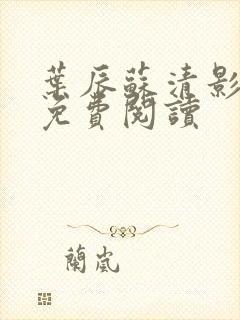 葉辰蘇清影
免費閱讀
蘭嵐